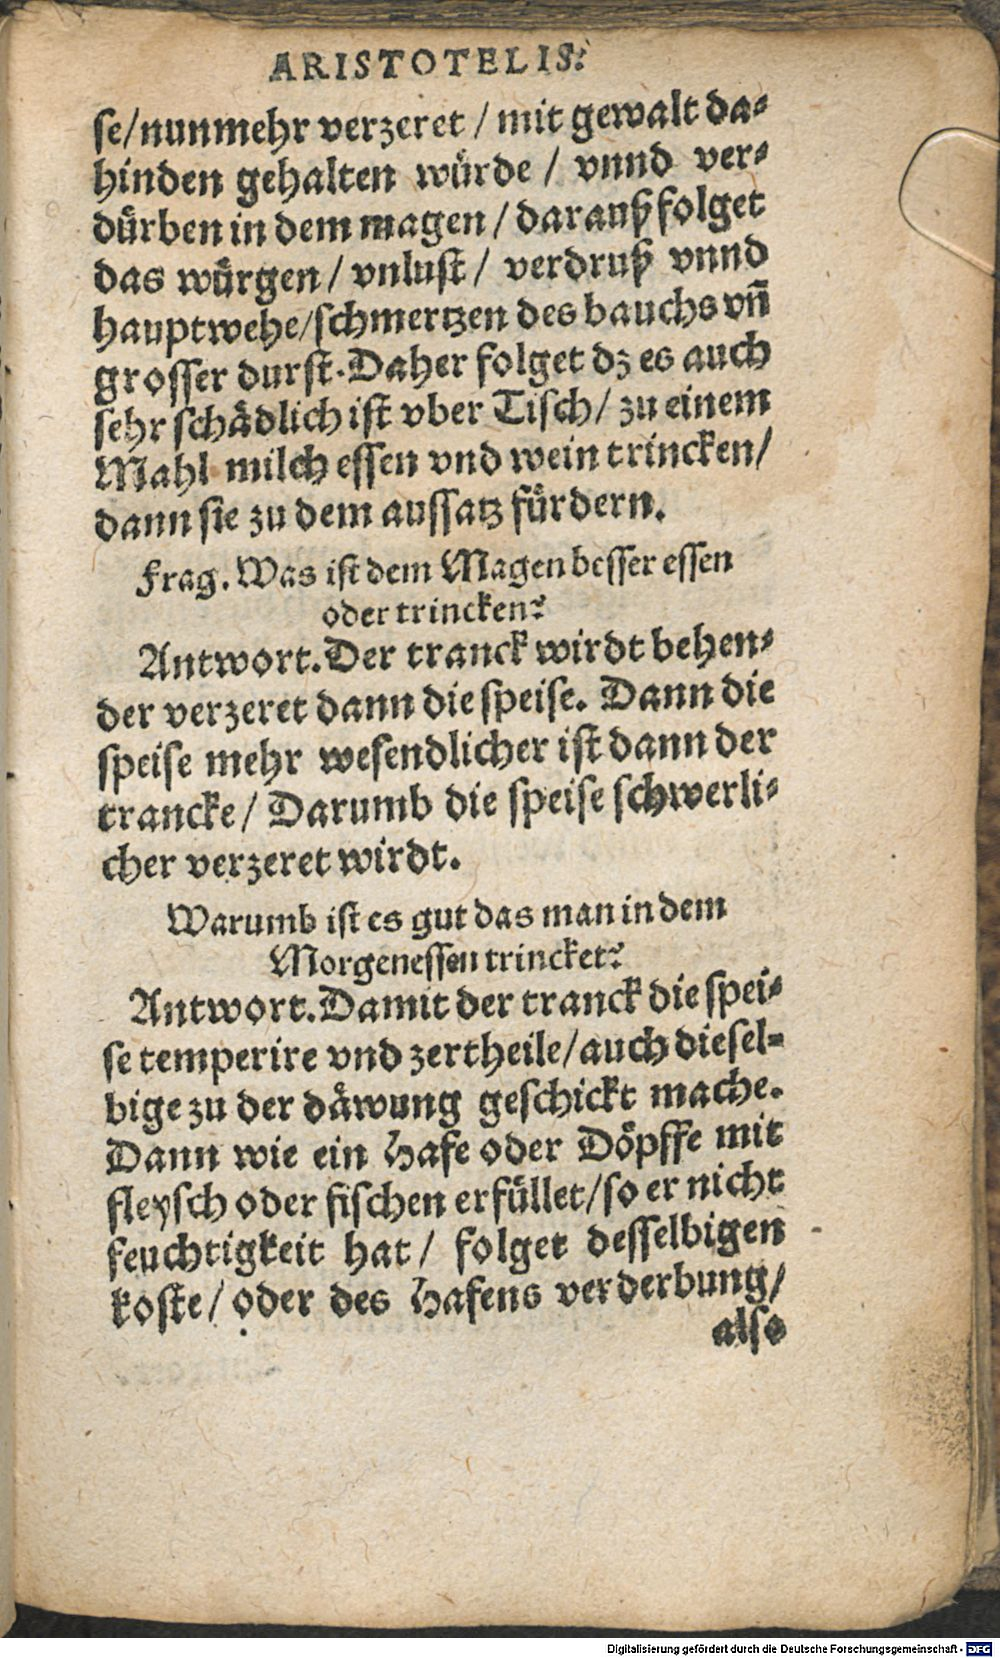 ARISTOTELIS.
se/nunmehr verzeret / mit gewalt da-
hinden gehalten würde / vnnd ver-
dürben in dem magen / darauß folget
das würgen / vnlust / verdruß vnnd
hauptwehe/schmertzen des bauchs vñ
grosser durst. Daher folget dz es auch
sehr schädlich ist vber Tisch / zu einem
Mahl milch essen vnd wein trincken/
dann sie zu dem aussatz fürdern.
Frag. Was ist dem Magen besser essen
oder trincken?
Antwort. Der tranck wirdt behen-
der verzeret dann die speise. Dann die
speise mehr wesendlicher ist dann der
trancke / Darumb die speise schwerli-
cher verzeret wirdt.
Warumb ist es gut das man in dem
Morgenessen trincket?
Antwort. Damit der tranck die spei-
se temperire vnd zertheile/auch diesel-
bige zu der däwung geschickt mache.
Dann wie ein Hafe oder Döpffe mit
fleysch oder fischen erfüllet/so er nicht
feuchtigkeit hat / folget desselbigen
koste / oder des Hafens verderbung/
also
Digitalisierung gefördert durch die Deutsche Forschungsgemeinschaft - DFG